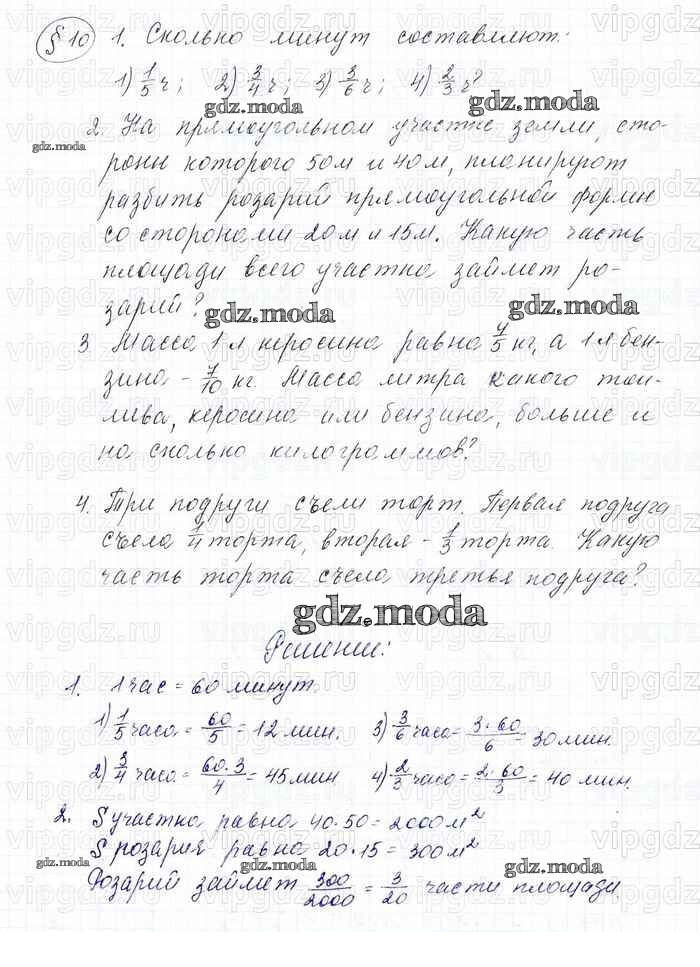 § 10 1. Сколько минут составляют:
1) 1/5 ч; 2) 3/4 ч; 3) 3/6 ч; 4) 2/3 ч?
gdz.moda gdz.moda
2. На прямоугольном участке земли, сто-
gdz.moda
роны которого 50м и 40м, планируют
разбить розарий прямоугольной формы
со сторонами 20м и 15м. Какую часть
площади всего участка займет ро-
зарий?
gdz.moda gdz.moda
3 Масса 1 л керосина равна 4/5 кг, а 1 л бен-
зина - 7/10 кг. Масса литра какого топ-
лива, керосина или бензина, больше и
на сколько килограммов?
4. Три подруги съели торт. Первая подруга
съела 1/4 торта, вторая - 1/3 торта. Какую
часть торта съела третья подруга?
gdz.moda
Решение:
1. 1 час = 60 минут.
1) 1/5 часа = 60/5 = 12 мин. 3) 3/6 часа = 3·60/6 = 30 мин.
2) 3/4 часа = 60·3/4 = 45 мин 4) 2/3 часа = 2·60/3 = 40 мин.
2. S участка равна 40·50 = 2000 м²
S розария равна 20·15 = 300 м²
gdz.moda gdz.moda gdz.moda
Розарий займет 300/2000 = 3/20 части площади.